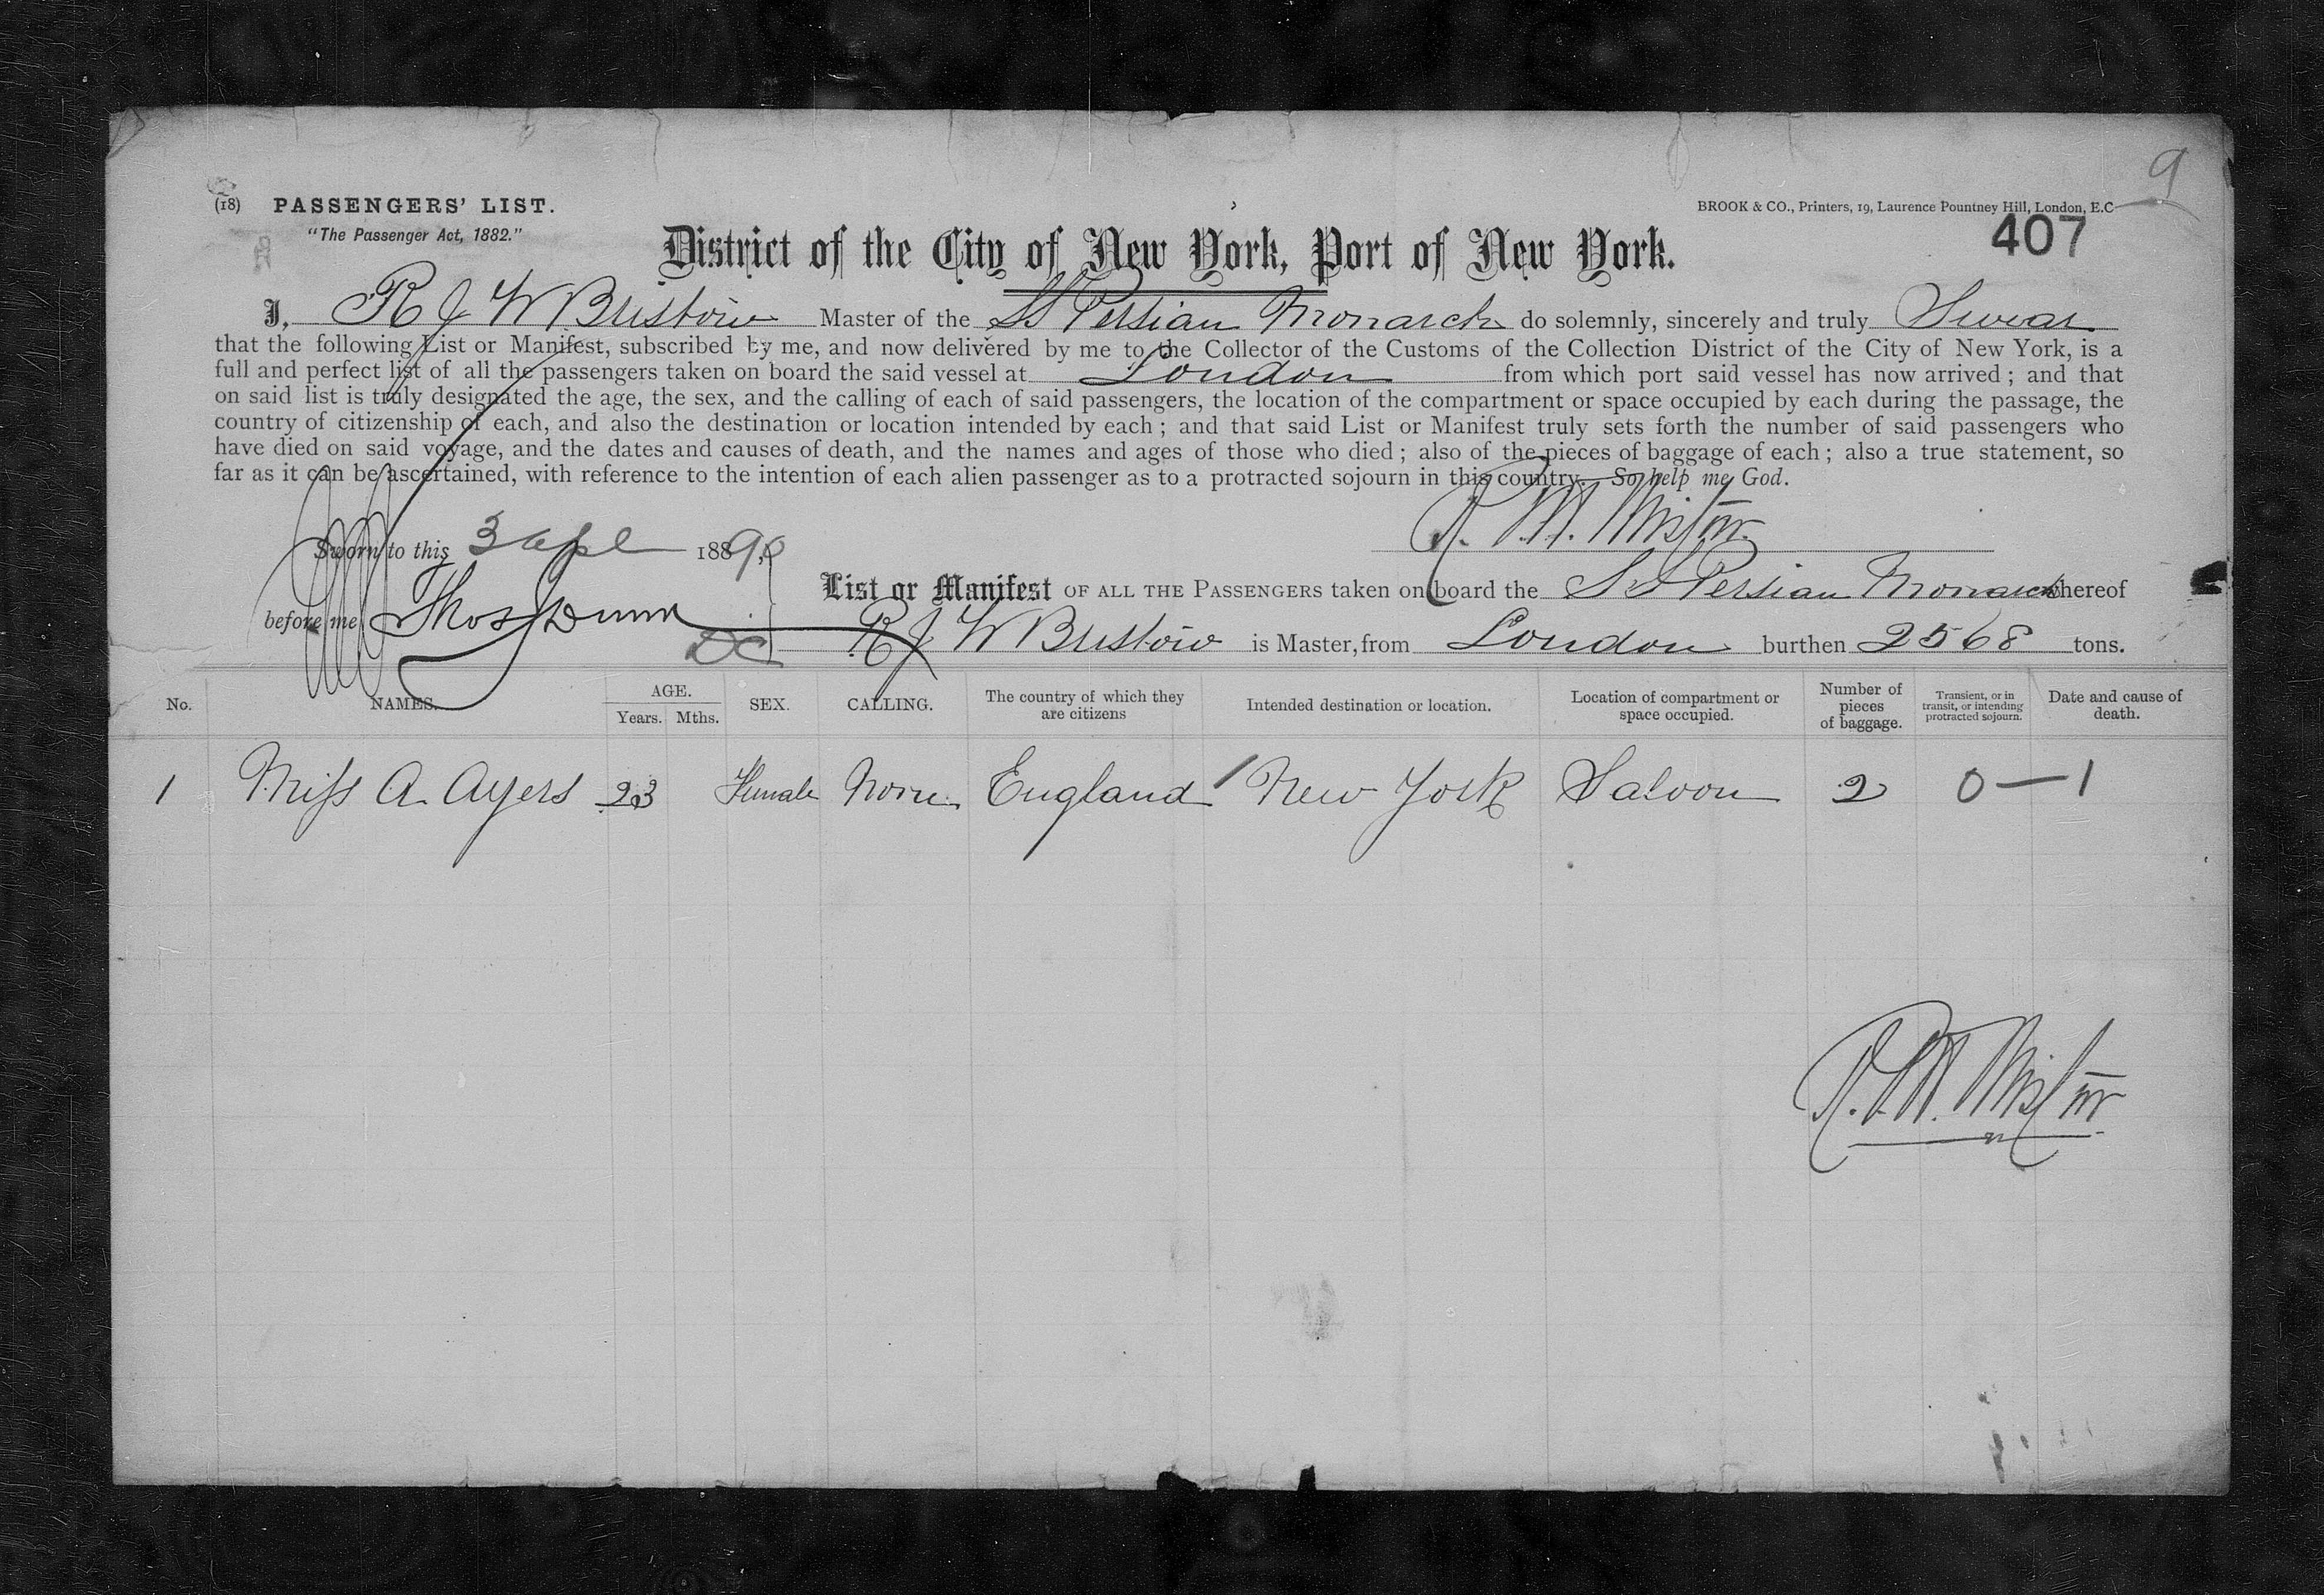 9
(18) PASSENGERS' LIST.
BROOK & CO., Printers, 19, Laurence Pountney Hill, London, E.C
"The Passenger Act, 1882."
407
District of the City of New York, Port of New York.
I, R J W Bristow Master of the SS Persian Monarch do solemnly, sincerely and truly Swear
that the following List or Manifest, subscribed by me, and now delivered by me to the Collector of the Customs of the Collection District of the City of New York, is a
full and perfect list of all the passengers taken on board the said vessel at London from which port said vessel has now arrived ; and that
on said list is truly designated the age, the sex, and the calling of each of said passengers, the location of the compartment or space occupied by each during the passage, the
country of citizenship of each, and also the destination or location intended by each ; and that said List or Manifest truly sets forth the number of said passengers who
have died on said voyage, and the dates and causes of death, and the names and ages of those who died ; also of the pieces of baggage of each ; also a true statement, so
far as it can be ascertained, with reference to the intention of each alien passenger as to a protracted sojourn in this country. So help me God.
Sworn to this 3 Apl 188 90
List or Manifest OF ALL THE PASSENGERS taken on board the SS Persian Monarch whereof
before me Thos Dunn
DC
R J W Bristow is Master, from London burthen 2568 tons.
No. NAMES. AGE. Years. Mths. SEX. CALLING. The country of which they are citizens Intended destination or location. Location of compartment or space occupied. Number of pieces of baggage. Transient, or in transit, or intending protracted sojourn. Date and cause of death.
1 Miss A Ayers 23 Female None England New York Saloon 2 0—1